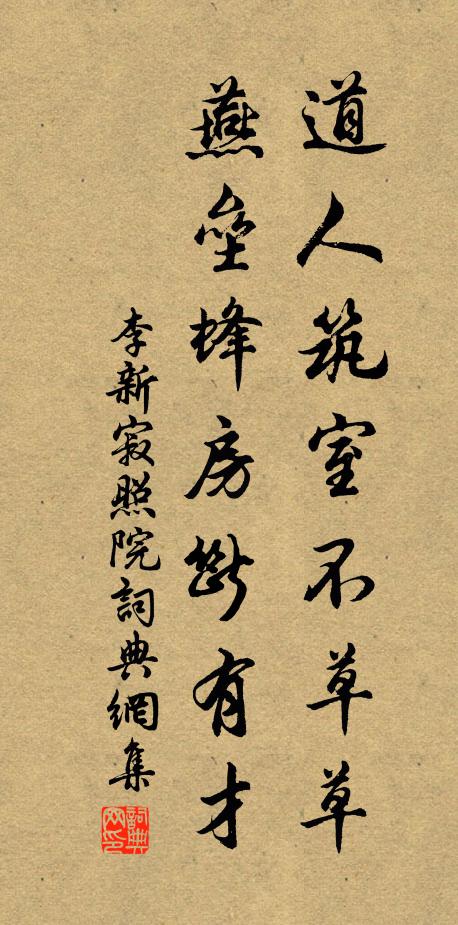 道人筑室不草草
燕垒蜂房斷有才
李新寂照院詞典網集
詞典网印